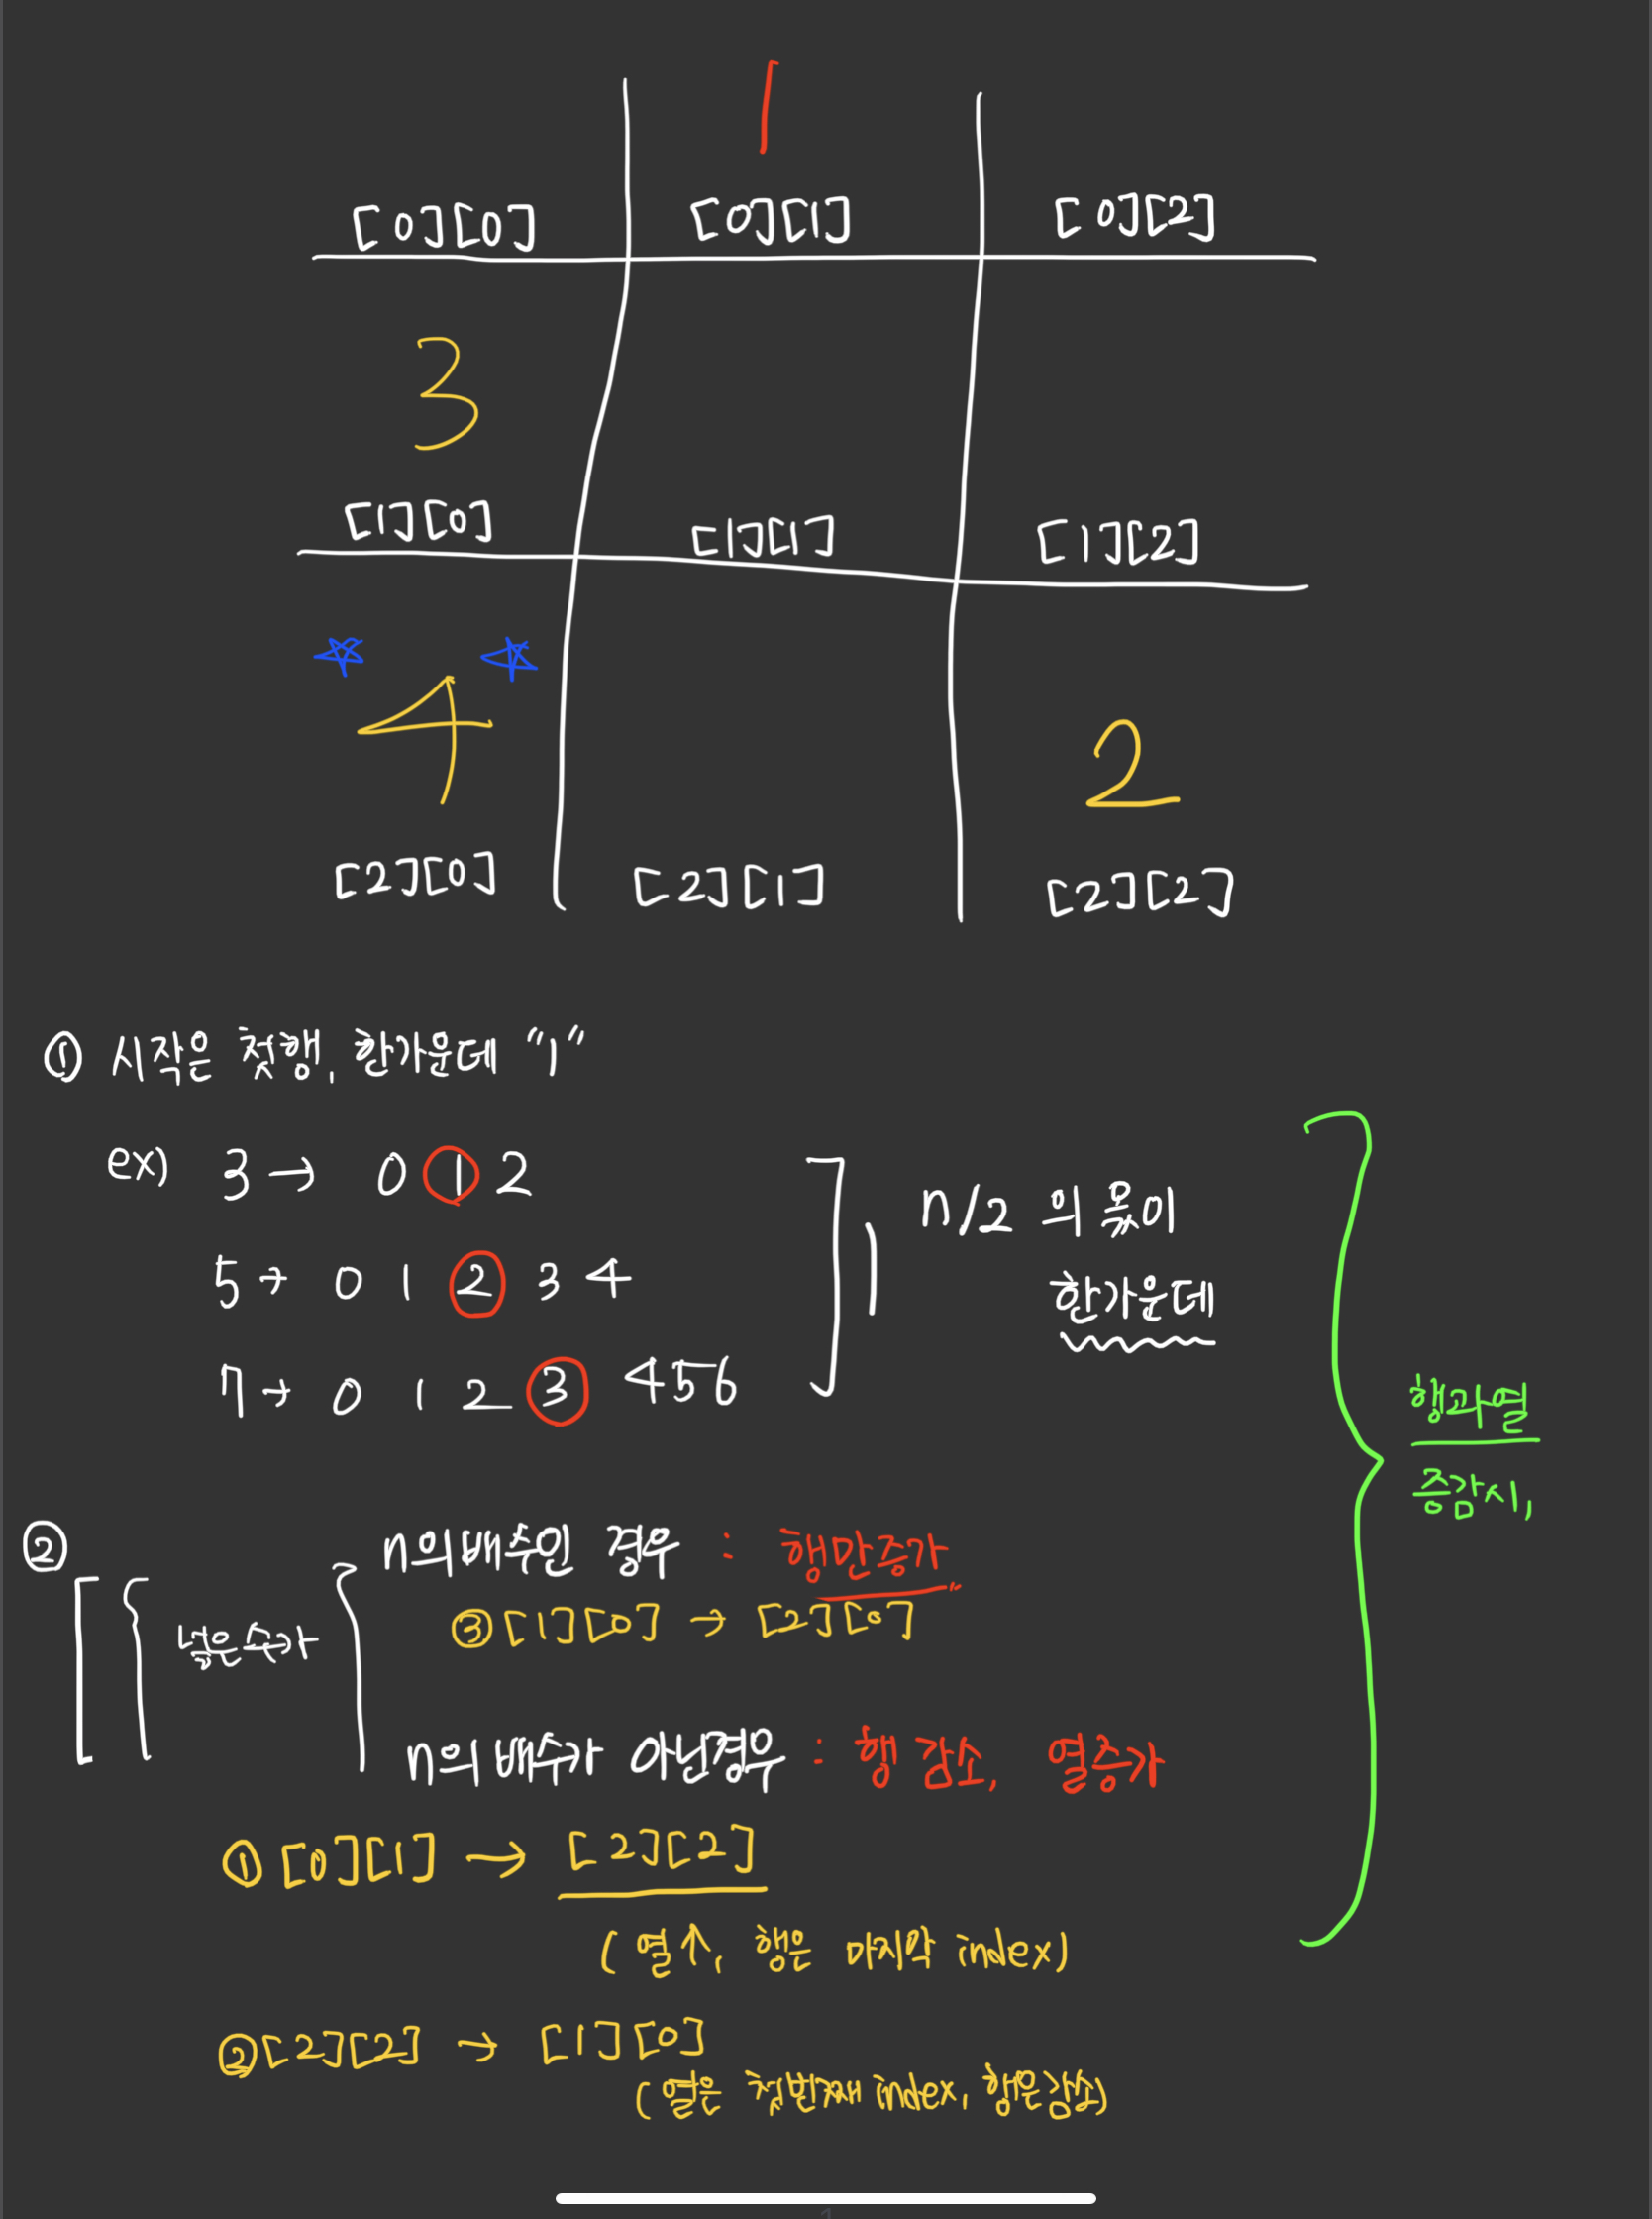 1
[0][0] [0][1] [0][2]
3
[1][0] [1][1] [1][2]
4 2
[2][0] [2][1] [2][2]
① 시작은 첫행, 한가운데 "1"
ex) 3 → 0 1 2
5 → 0 1 2 3 4
7 → 0 1 2 3 4 5 6
n/2 의 몫이
한가운데
행과열
증감시,
②
넣은숫자
n의배수인 경우 : 행만증가
③ [1][0] → [2][0]
n의 배수가 아닌경우 : 행 감소, 열증가
① [0][1] → [2][2]
(열↑, 행은 마지막 index)
② [2][2] → [1][0]
(열은 첫번째 index, 행은감소)